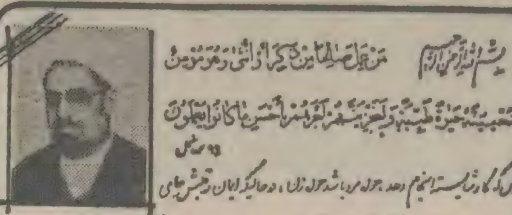 بسم الله الرحمن الرحیم
من عمل صالحا من ذکر أو أنثی و هو مؤمن
فلنحیینه حیوة طیبة و لنجزینهم أجرهم بأحسن ما کانوا یعملون
۹۷ نحل
هر که کار شایسته انجام دهد چه مرد باشد چه زن ، در حالیکه ایمان